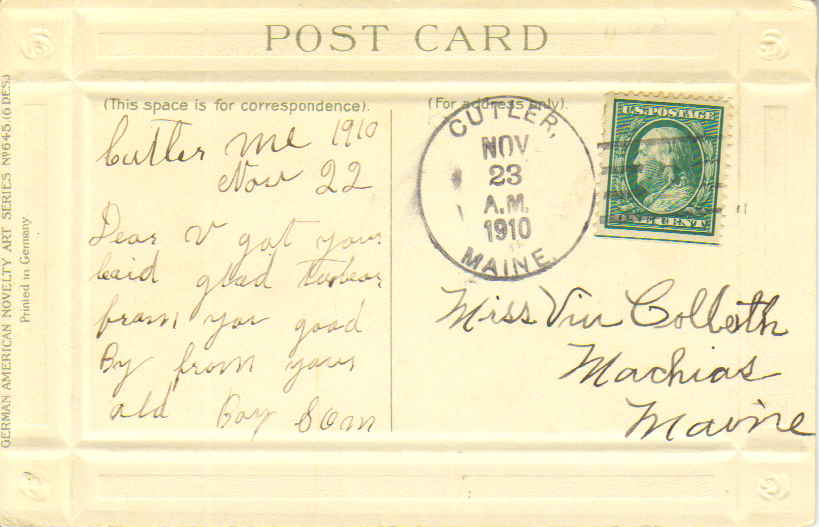 POST CARD
(This space is for correspondence).
(For address only).
Cutler Me 1910
Nov 22
Dear V got your
caid glad to hear
from you good
By from your
old Boy Som
CUTLER,
NOV
23
A.M.
1910
MAINE.
U.S. POSTAGE
ONE CENT
Miss Vin
Machias
Maine
GERMAN AMERICAN NOVELTY ART SERIES Nº 645 (6 DES.)
Printed in Germany